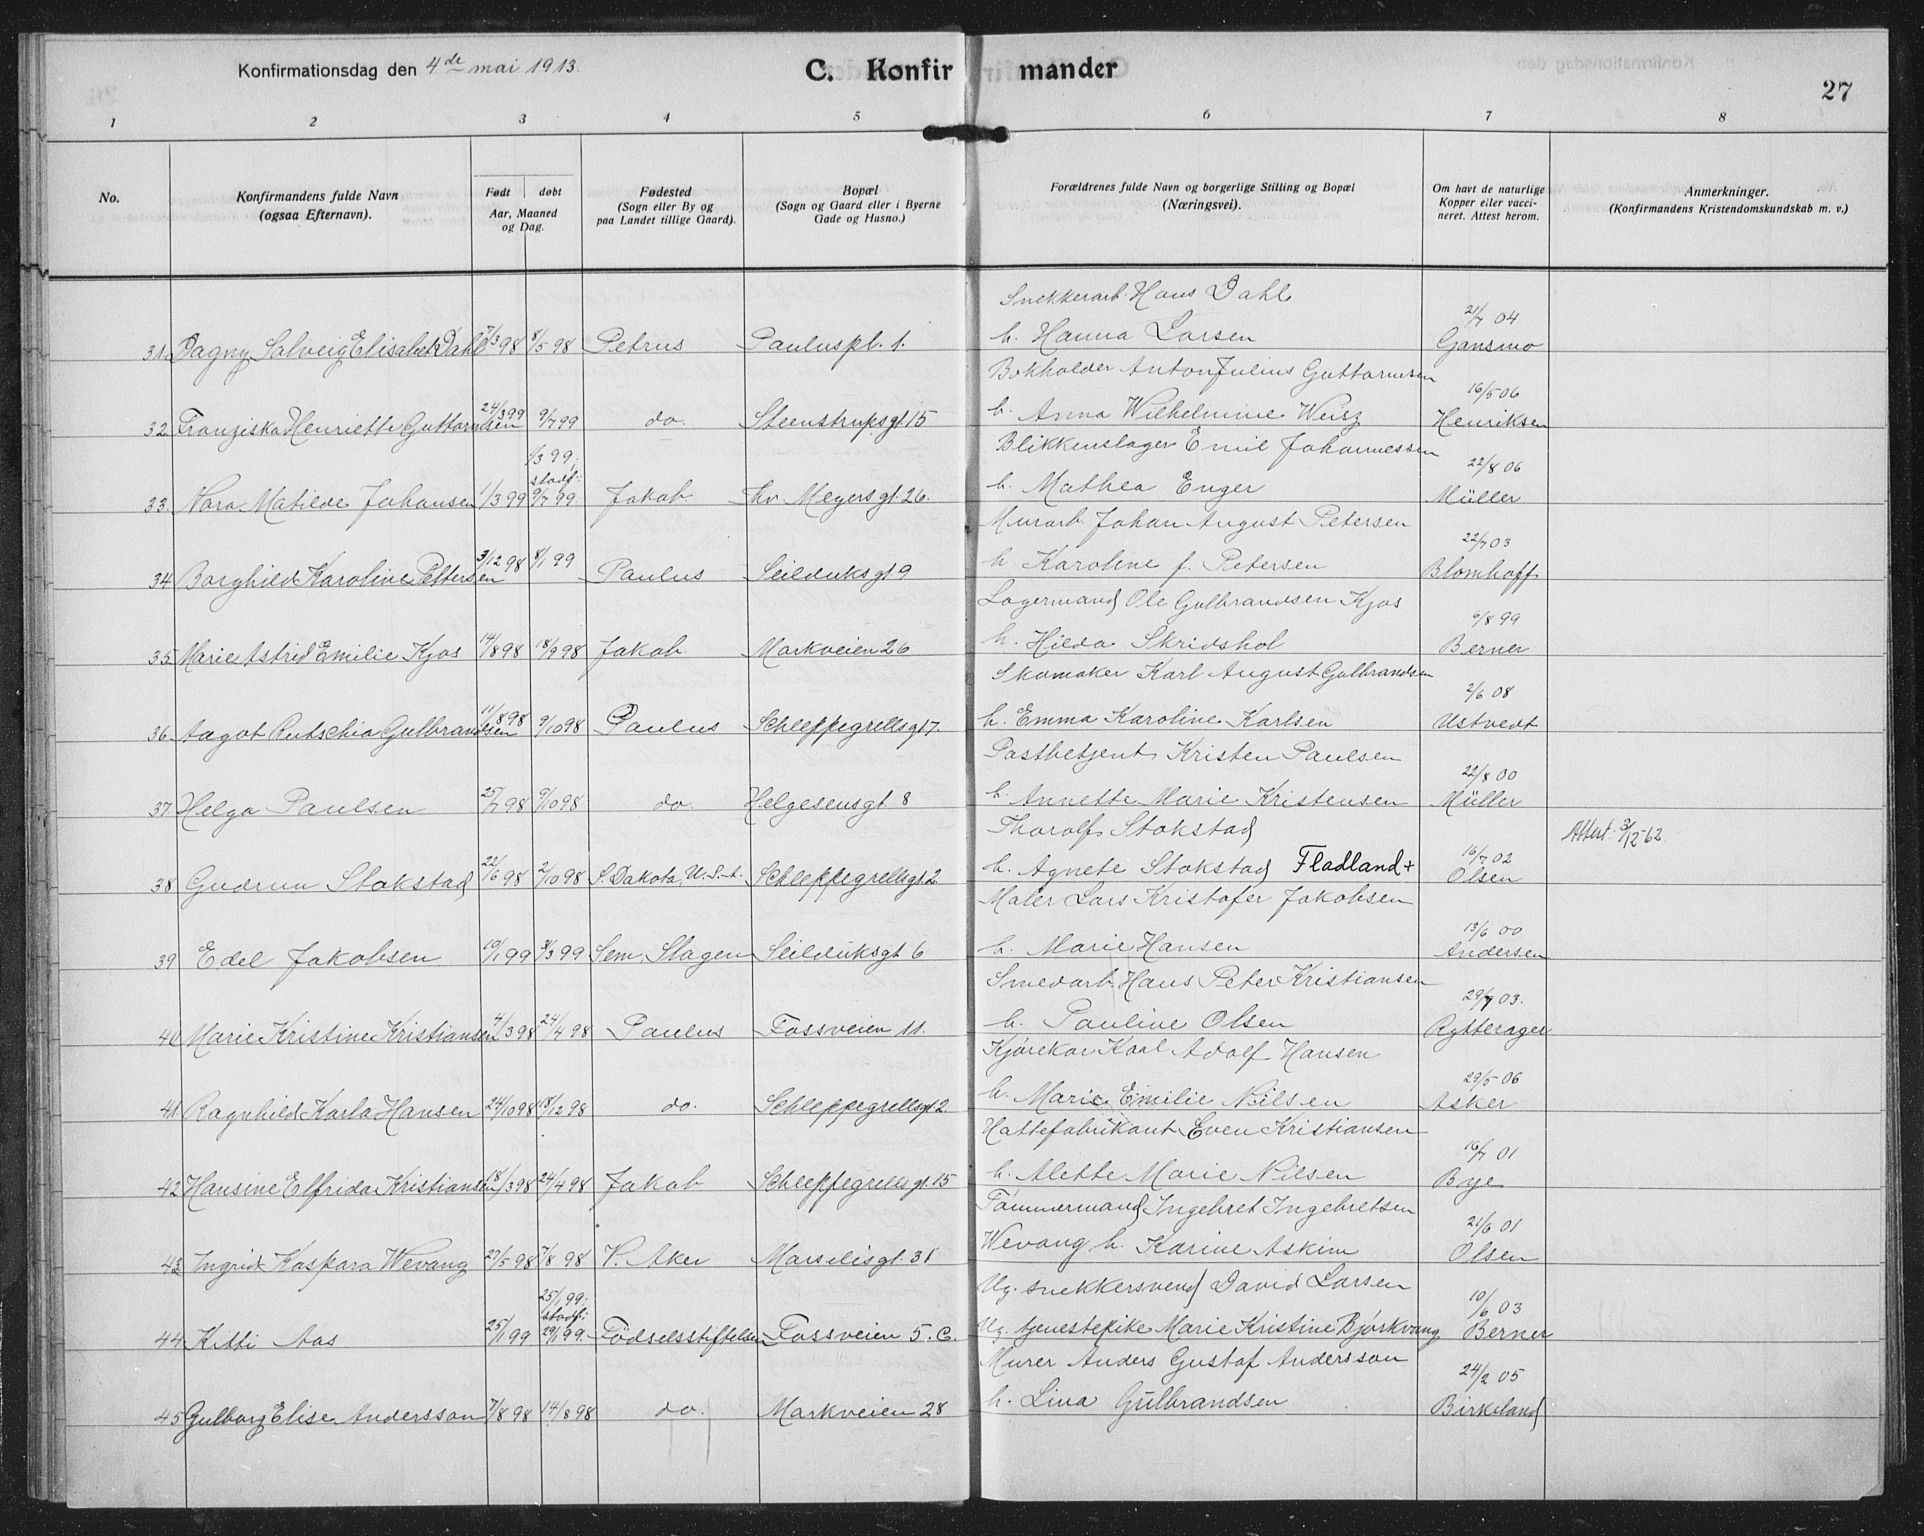 Konfirmationsdag den 4de mai 1913.
C. Konfirmander
27
1 2 3 4 5 6 7 8
No.
Konfirmandens fulde Navn (ogsaa Efternavn).
Født døbt
Aar, Maaned og Dag.
Fødested (Sogn eller By og paa Landet tillige Gaard).
Bopæl (Sogn og Gaard eller i Byerne Gade og Husno.)
Forældrenes fulde Navn og borgerlige Stilling og Bopæl (Næringsvei).
Om havt de naturlige Kopper eller vaccineret. Attest herom.
Anmerkninger. (Konfirmandens Kristendomskundskab m. v.)
Snekkerarb. Hans Dahl 21/7 04
31 Dagny Solveig Elisabeth Dahl 7/3 98 8/5 98 Petrus Pauluspl. 1. h. Hanna Larsen Gansmo
Bokholder Anton Julius Guttormsen 16/5 06
32 Franziska Henriette Guttormsen 24/3 99 9/7 99 do. Steenstrupsgt. 15 h. Anna Wilhelmine Weisz Henriksen
Blikkenslager Emil Johannessen 22/8 06
33. Nora Matilde Johansen 1/3 99 1/3 99; stadf: 9/7 99 Jakob Thv. Meyersgt. 26. h. Mathea Enger Müller
Murarb. Johan August Petersen 22/7 03
34 Borghild Karoline Pettersen 3/12 98 8/1 99 Paulus Seilduksgt 9 h Karoline f. Petersen Blomhoff
Lagermand Ole Gulbrandsen Kjos 6/8 99
35 Marie Astrid Emilie Kjos 14/8 98 18/9 98 Jakob Markveien 26 h. Hilda Skridshol Berner
Skomaker Karl August Gulbrandsen 2/6 08
36 Aagot Rutschia Gulbrandsen 11/8 98 9/10 98 Paulus Schleppegrellsgt 7. h. Emma Karoline Karlsen Ustvedt
Postbetjent Kristen Paulsen 22/8 00
37 Helga Paulsen 25/7 98 9/10 98 do. Helgesensgt. 8 h. Annette Marie Kristensen Müller
Thorolf Stokstad 16/7 02 Attest 3/12-62.
38 Gudrun Stokstad 22/6 98 2/10 98 S. Dakota, U.S.A. Schleppegrellsgt. 2 h. Agnete Stokstad Fladland+ Olsen
Maler Lars Kristofer Jakobsen 13/6 00
39 Edel Jakobsen 19/1 99 31/3 99 Sem, Slagen Seilduksgt 6 h. Marie Hansen Andersen
Smedarb. Hans Peter Kristiansen 29/7 03.
40 Marie Kristine Kristiansen 4/3 98 24/4 98 Paulus Fossveien 11. h. Pauline Olsen Rytterager
Kjørekar Karl Adolf Hansen 29/5 06
41 Ragnhild Karla Hansen 24/10 98 18/12 98 do. Schleppegrellsgt 2 h. Marie Emilie Nilsen Asker
Hattefabrikant Even Kristiansen 16/7 01
42 Hansine Elfrida Kristiansen 18/3 98 24/4 98 Jakob Schleppegrellsgt. 15 h. Alette Marie Nilsen Bye
Tømmermand Ingebret Ingebretsen 21/6 01
43 Ingrid Kaspara Wevang 27/5 98 7/8 98 V. Aker Marselisgt. 31 Wevang h. Karine Askim Olsen
Ug. snekkersvend David Larsen 10/6 03
44 Kitti Aas 25/1 99 25/1 99; stadf: 29/1 99. Fødselsstiftelsen Fossveien 5. C. Ug. tjenestepike Marie Kristine Bjørkvang Berner
Murer Anders Gustaf Andersson 24/2 05
45 Gulborg Elise Andersson 7/8 98 14/8 98 do. Markveien 28 h. Lina Gulbrandsen Birkeland